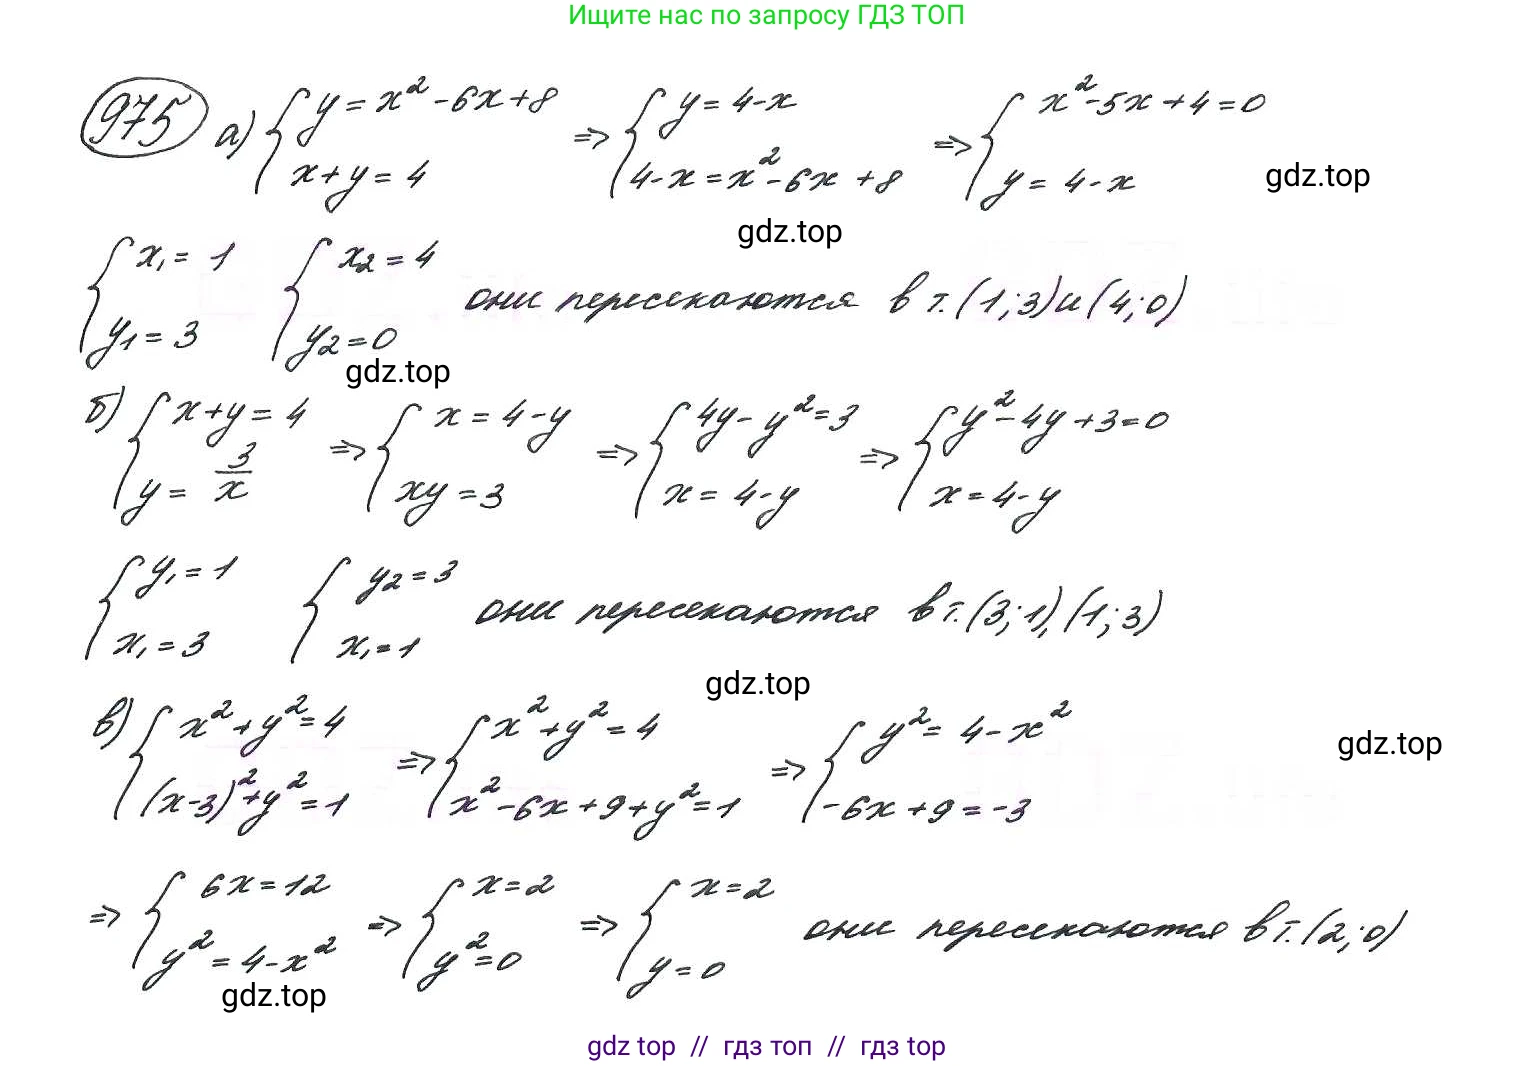 Ищите нас по запросу ГДЗ ТОП
975 а) { y = x² - 6x + 8 ; x + y = 4 => { y = 4 - x ; 4 - x = x² - 6x + 8 => { x² - 5x + 4 = 0 ; y = 4 - x
gdz.top
gdz.top
{ x₁ = 1 ; y₁ = 3 { x₂ = 4 ; y₂ = 0 они пересекаются в т. (1; 3) и (4; 0)
gdz.top
б) { x + y = 4 ; y = 3/x => { x = 4 - y ; xy = 3 => { 4y - y² = 3 ; x = 4 - y => { y² - 4y + 3 = 0 ; x = 4 - y
{ y₁ = 1 ; x₁ = 3 { y₂ = 3 ; x₁ = 1 они пересекаются в т. (3; 1), (1; 3)
gdz.top
в) { x² + y² = 4 ; (x - 3)² + y² = 1 => { x² + y² = 4 ; x² - 6x + 9 + y² = 1 => { y² = 4 - x² ; -6x + 9 = -3
gdz.top
=> { 6x = 12 ; y² = 4 - x² => { x = 2 ; y² = 0 => { x = 2 ; y = 0 они пересекаются в т. (2; 0)
gdz.top
gdz top // гдз топ // гдз top